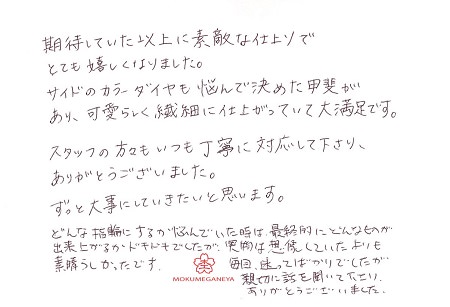 期待していた以上に素敵な仕上りで
とても嬉しくなりました。
サイドのカラーダイヤも悩んで決めた甲斐が
あり、可愛らしく繊細に仕上がっていて大満足です。
スタッフの方々もいつも丁寧に対応して下さり、
ありがとうございました。
ずっと大事にしていきたいと思います。
どんな指輪にするか悩んでいた時は、最終的にどんなものが
出来上がるかドキドキでしたが、実物は想像していたよりも
素晴らしかったです。
毎回、迷ってばかりでしたが
親切に話を聞いて下さい
ありがとうございました。
MOKUMEGANEYA